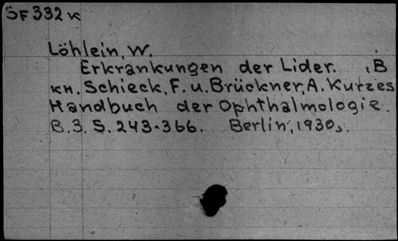 SF 332 K
Löhlein, W.
Erkrankungen der Lider. , B
кн. Schieck, F. u. Brückner, A. Kurzes
Handbuch der Ophthalmologie.
B. 3. S. 243-366. Berlin, 1930.